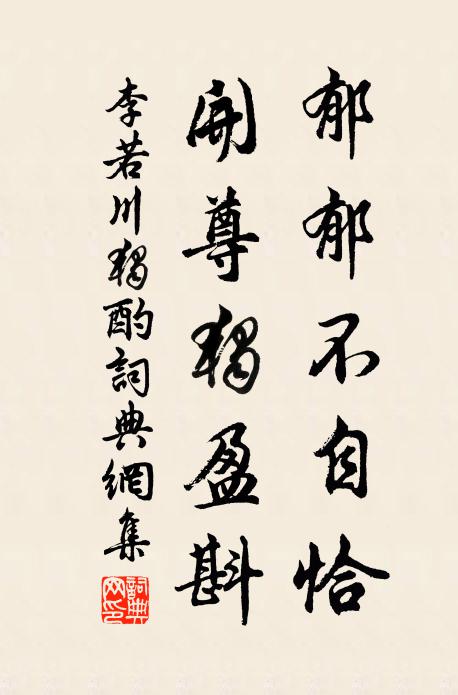 郁郁不自恰
開尊獨盈斟
李若川獨酌詞典網集
詞典网印